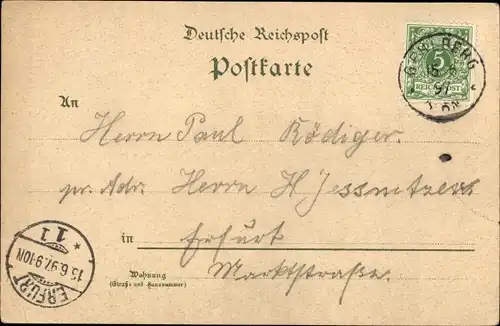 Deutsche Reichspost
Postkarte
5
REICHSPOST
GEHLBERG
97
An
Herrn Paul Rödiger.
pr. Adr. Herrn H
in Erfurt
Marktstraße.
Wohnung
(Straße und Hausnummer)
ERFURT
15.6.97.9-10N
* 1 1